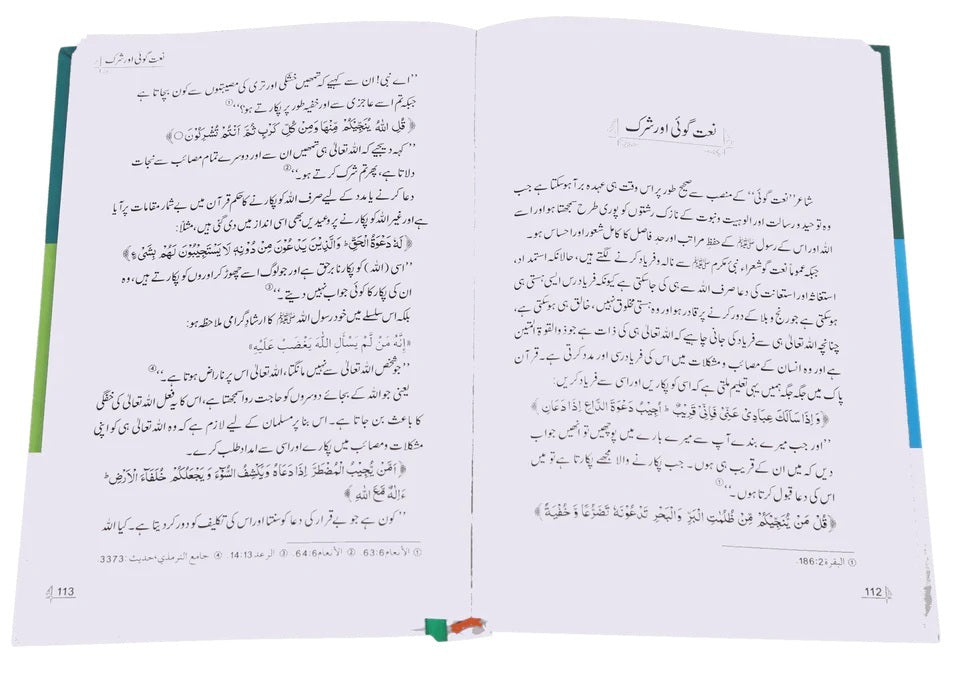 نعت گوئی اور شرک
شاعر ’’نعت گوئی‘‘ کے منصب سے صحیح طور پر اس وقت ہی عہدہ برآ ہوسکتا ہے جب
وہ توحید و رسالت اور الوہیت و نبوت کے نازک رشتوں کو پوری طرح سمجھتا ہو اور اسے
اللہ اور اس کے رسول ﷺ کے حفظ مراتب اور حد فاصل کا کامل شعور اور احساس ہو۔
جبکہ عموماً نعت گو شعراء نبی مکرم ﷺ سے نالہ و فریاد کرنے لگتے ہیں، حالانکہ استمداد،
استغاثہ اور استعانت کی دعا صرف اللہ سے ہی کی جاسکتی ہے کیونکہ فریاد رس ایسی ہستی ہی
ہوسکتی ہے جو رنج و بلا کے دور کرنے پر قادر ہو اور وہ ہستی مخلوق نہیں، خالق ہی ہوسکتی ہے،
چنانچہ اللہ تعالیٰ ہی سے فریاد کی جانی چاہیے کہ اللہ تعالیٰ ہی کی ذات ہے جو ذو القوۃ المتین
ہے اور وہ انسان کے مصائب و مشکلات میں اس کی فریاد رسی اور مدد کرتی ہے۔ قرآن
پاک میں جگہ جگہ ہمیں یہی تعلیم ملتی ہے کہ اسی کو پکاریں اور اسی سے فریاد کریں:
﴿وَاِذَا سَاَلَكَ عِبَادِيْ عَنِّيْ فَاِنِّيْ قَرِيْبٌ ؕ اُجِيْبُ دَعْوَةَ الدَّاعِ اِذَا دَعَانِ﴾
’’اور جب میرے بندے آپ سے میرے بارے میں پوچھیں تو انھیں جواب
دیں کہ میں ان کے قریب ہی ہوں۔ جب پکارنے والا مجھے پکارتا ہے تو میں
اس کی دعا قبول کرتا ہوں۔‘‘①
﴿قُلْ مَنْ يُّنَجِّيْكُمْ مِّنْ ظُلُمٰتِ الْبَرِّ وَالْبَحْرِ تَدْعُوْنَهٗ تَضَرُّعًا وَّخُفْيَةً﴾
① البقرۃ 186:2.
112
نعت گوئی اور شرک
’’اے نبی! ان سے کہیے کہ تمھیں خشکی اور تری کی مصیبتوں سے کون بچاتا ہے
جبکہ تم اسے عاجزی سے اور خفیہ طور پر پکارتے ہو؟‘‘①
﴿قُلِ اللّٰهُ يُنَجِّيْكُمْ مِّنْهَا وَمِنْ كُلِّ كَرْبٍ ثُمَّ اَنْتُمْ تُشْرِكُوْنَ○﴾
’’کہہ دیجیے کہ اللہ تعالیٰ ہی تمھیں ان سے اور دوسرے تمام مصائب سے نجات
دلاتا ہے، پھر تم شرک کرتے ہو۔‘‘②
دعا کرنے یا مدد کے لیے صرف اللہ کو پکارنے کا حکم قرآن میں بے شمار مقامات پر آیا
ہے اور غیر اللہ کو پکارنے پر وعیدیں بھی اسی انداز میں دی گئی ہیں، مثلاً:
﴿لَهٗ دَعْوَةُ الْحَقِّ ؕ وَالَّذِيْنَ يَدْعُوْنَ مِنْ دُوْنِهٖ لَا يَسْتَجِيْبُوْنَ لَهُمْ بِشَيْءٍ﴾
’’اسی (اللہ) کو پکارنا برحق ہے اور جو لوگ اسے چھوڑ کر اوروں کو پکارتے ہیں، وہ
ان کی پکار کا کوئی جواب نہیں دیتے۔‘‘③
بلکہ اس سلسلے میں خود رسول اللہ ﷺ کا ارشاد گرامی ملاحظہ ہو:
«إِنَّهُ مَنْ لَمْ يَسْأَلِ اللَّهَ يَغْضَبْ عَلَيْهِ»
’’جو شخص اللہ تعالیٰ سے نہیں مانگتا، اللہ تعالیٰ اس پر ناراض ہوتا ہے۔‘‘④
یعنی جو اللہ کے بجائے دوسروں کو حاجت روا سمجھتا ہے، اس کا یہ فعل اللہ تعالیٰ کی خفگی
کا باعث بن جاتا ہے۔ اس بنا پر مسلمان کے لیے لازم ہے کہ وہ اللہ تعالیٰ ہی کو اپنی
مشکلات و مصائب میں پکارے اور اسی سے امداد طلب کرے۔
﴿اَمَّنْ يُّجِيْبُ الْمُضْطَرَّ اِذَا دَعَاهُ وَيَكْشِفُ السُّوْٓءَ وَيَجْعَلُكُمْ خُلَفَآءَ الْاَرْضِ ؕ
ءَاِلٰهٌ مَّعَ اللّٰهِ﴾
’’کون ہے جو بے قرار کی دعا کو سنتا اور اس کی تکلیف کو دور کر دیتا ہے۔ کیا اللہ
① الأنعام 63:6. ② الأنعام 64:6. ③ الرعد 14:13. ④ جامع الترمذي، حديث: 3373.
113